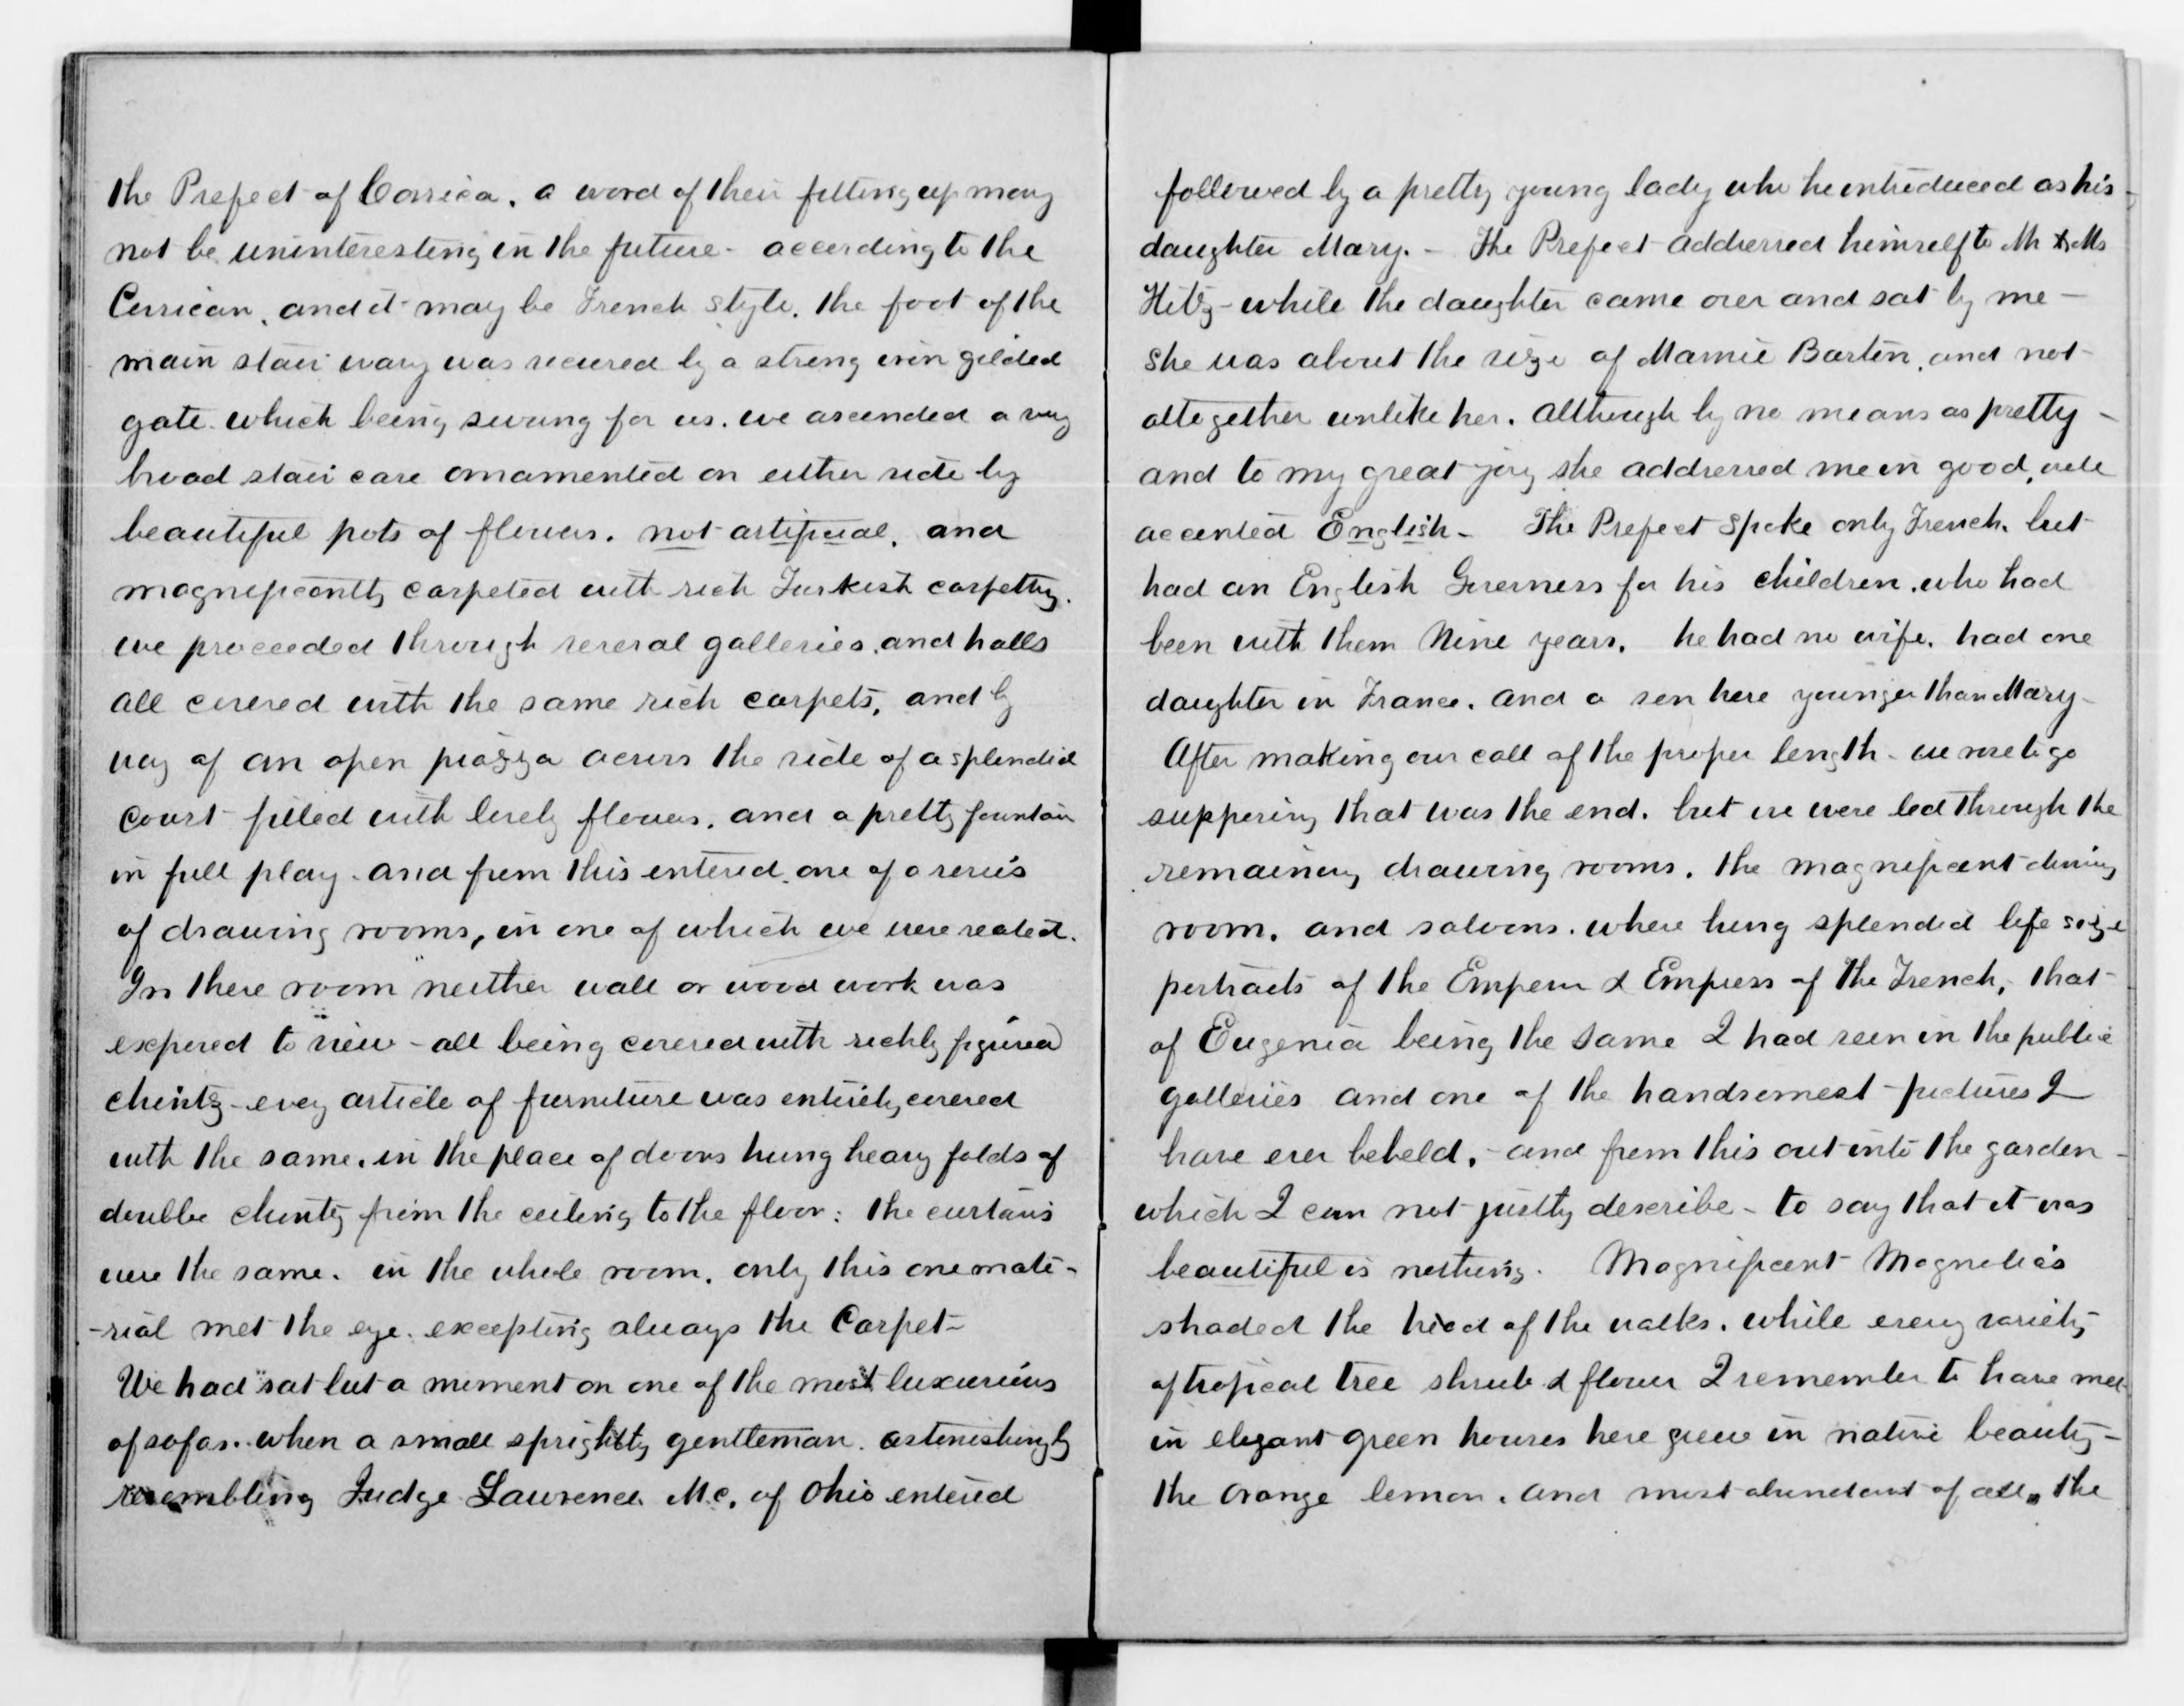 the Prefect of Corsica. a word of their fitting up may
not be uninteresting in the future - according to the
Corsican, and it may be French style. the foot of the
main stair way was secured by a strong iron gilded
gate. which being swung for us. we ascended a very
broad stair case ornamented on either side by
beautiful pots of flowers. not artificial. and
magnificently carpeted with rich Turkish carpetting.
we proceeded through several galleries. and halls
all covered with the same rich carpets, and by
way of an open piazza across the side of a splendid
court filled with lovely flowers. and a pretty fountain
in full play - and from this entered one of a series
of drawing rooms, in one of which we were seated.
In these room neither wall or wood work was
exposed to view - all being covered with richly figured
chintz - every article of furniture was entirely covered
with the same. in the place of doors hung heavy folds of
double chintz from the ceiling to the floor: the curtains
were the same. in the whole room. only this one mate-
-rial met the eye. excepting always the Carpet -
We had sat but a moment on one of the most luxurious
of sofas. when a small sprightly gentleman. astonishingly
resembling Judge Lawrence M.C. of Ohio entered
followed by a pretty young lady who he introduced as his -
daughter Mary. - The Prefect addressed himself to Mr & Ms
Hitz - while the daughter came over and sat by me -
she was about the size of Mamie Barton. and not
altogether unlike her. although by no means as pretty -
and to my great joy she addressed me in good, well
accented English - The Prefect spoke only French. but
had an English Governess for his children. who had
been with them Nine years. he had no wife. had one
daughter in France. and a son here younger than Mary -
After making our call of the proper length - we rose to go
supposing that was the end. but we were led through the
remaining drawing rooms. the magnificent dining
room. and saloons. where hung splendid life size
portraits of the Emperor & Empress of the French, that
of Eugenia being the same I had seen in the public
galleries and one of the handsomest pictures I
have ever beheld. - and from this out into the garden -
which I can not justly describe - to say that it was
beautiful is nothing. Magnificent Magnolias
shaded the head of the walks. while every variety
of tropical tree shrub & flower I remember to have met
in elegant green houses here grew in native beauty -
the orange lemon. and most abundant of all, the